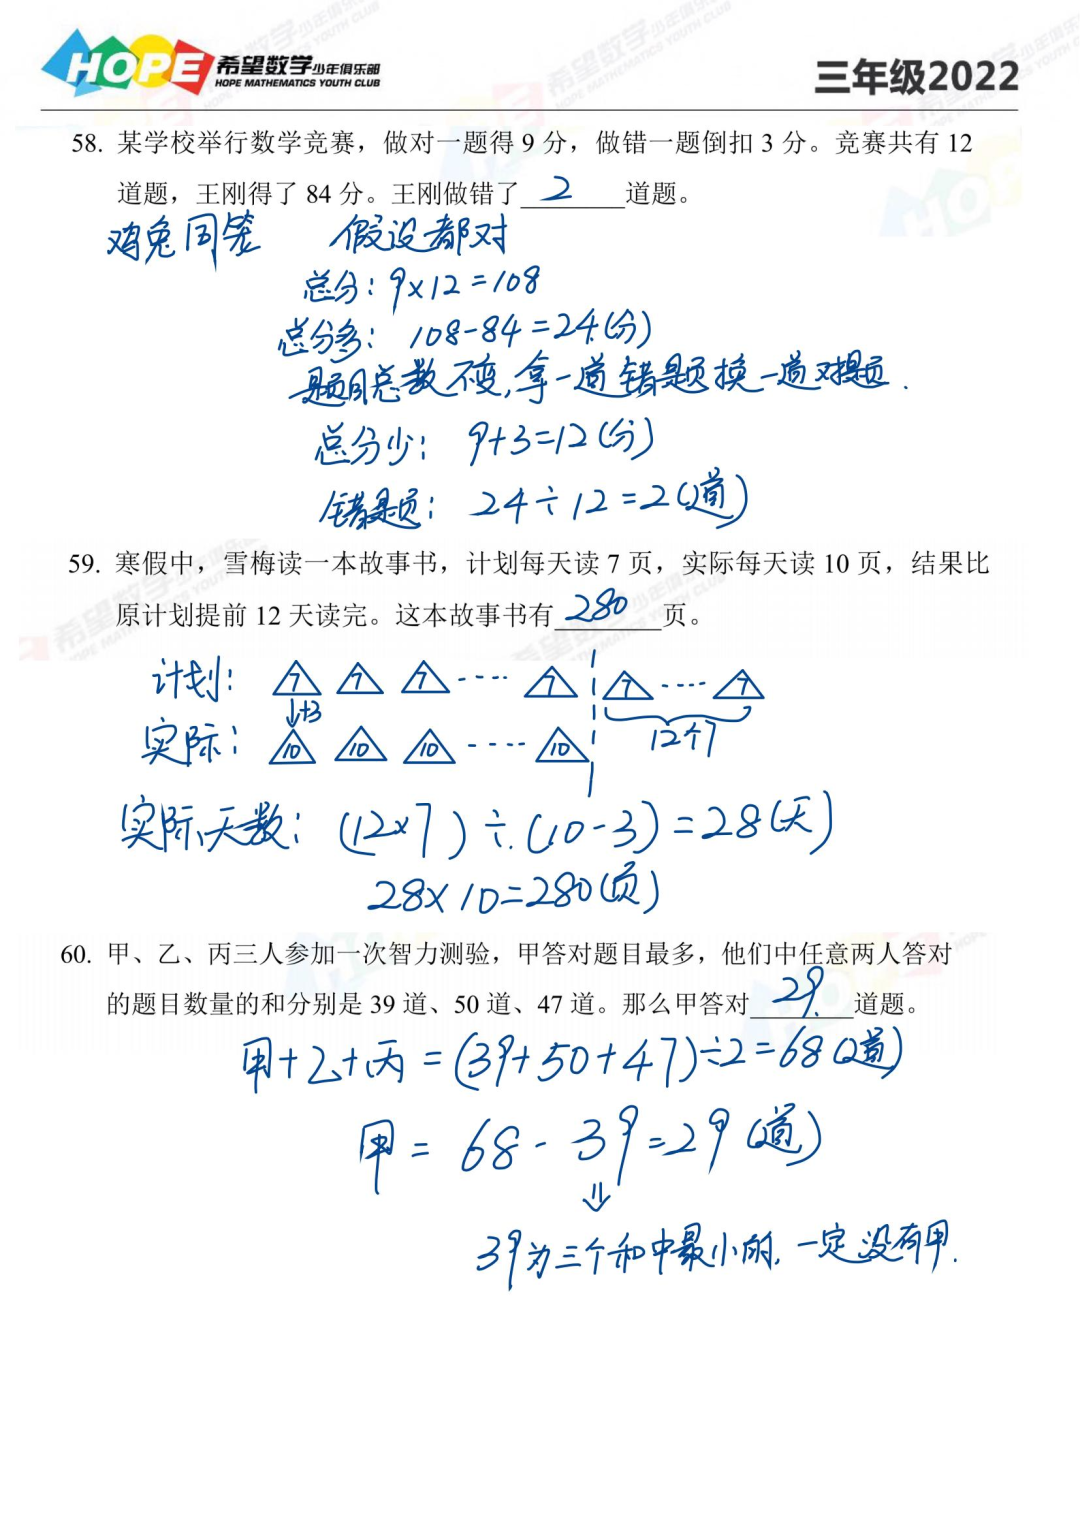 HOPE 希望数学少年俱乐部
HOPE MATHEMATICS YOUTH CLUB
三年级2022
58. 某学校举行数学竞赛，做对一题得 9 分，做错一题倒扣 3 分。竞赛共有 12
道题，王刚得了 84 分。王刚做错了 2 道题。
鸡兔同笼 假设都对
总分：9×12=108
总分多：108-84=24(分)
题目总数不变,拿一道错题换一道对题.
总分少：9+3=12(分)
错题：24÷12=2(道)
59. 寒假中，雪梅读一本故事书，计划每天读 7 页，实际每天读 10 页，结果比
原计划提前 12 天读完。这本故事书有 280 页。
计划: 7 7 7 ---- 7 7 ---- 7
+3
实际: 10 10 10 ---- 10 12个7
实际天数: (12×7)÷(10-3)=28(天)
28×10=280(页)
60. 甲、乙、丙三人参加一次智力测验，甲答对题目最多，他们中任意两人答对
的题目数量的和分别是 39 道、50 道、47 道。那么甲答对 29 道题。
甲+乙+丙=(39+50+47)÷2=68(道)
甲=68-39=29(道)
⇓
39为三个和中最小的,一定没有甲.